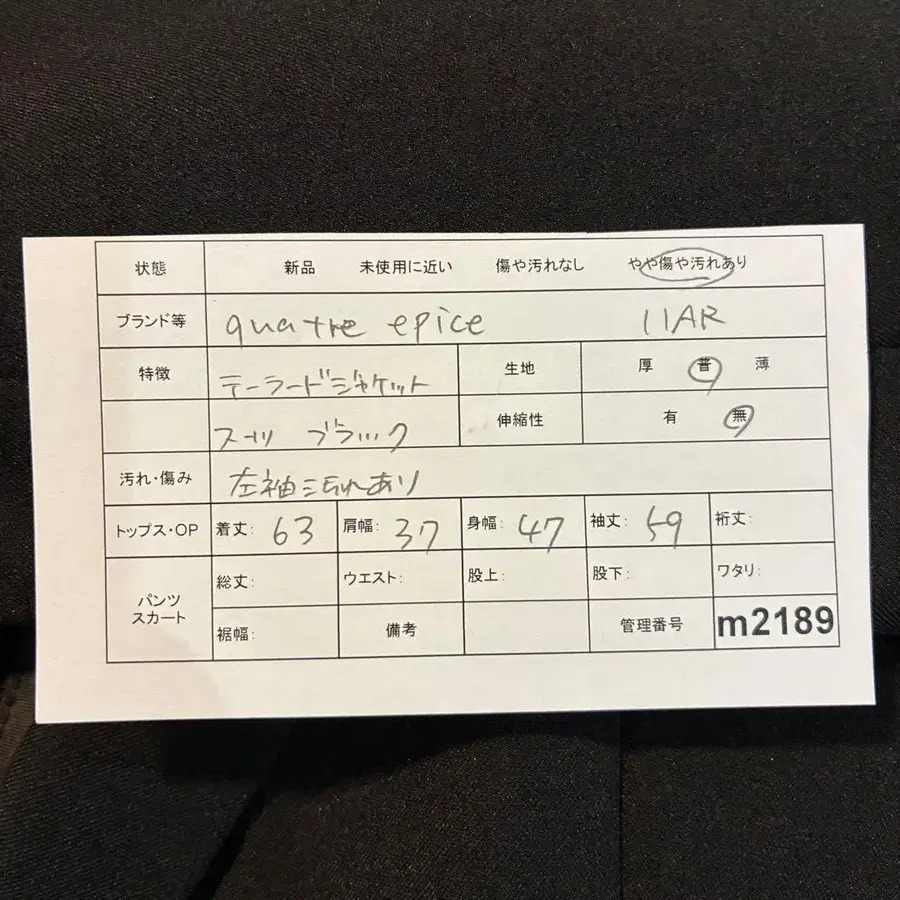 状態 新品 未使用に近い 傷や汚れなし やや傷や汚れあり
ブランド等 quatre epice 11AR
特徴 テーラードジャケット 生地 厚 普 薄
スーツ ブラック 伸縮性 有 無
汚れ・傷み 左袖汚れあり
トップス・OP 着丈: 63 肩幅: 37 身幅: 47 袖丈: 59 裄丈:
パンツ スカート 総丈: ウエスト: 股上: 股下: ワタリ:
裾幅: 備考 管理番号 m2189